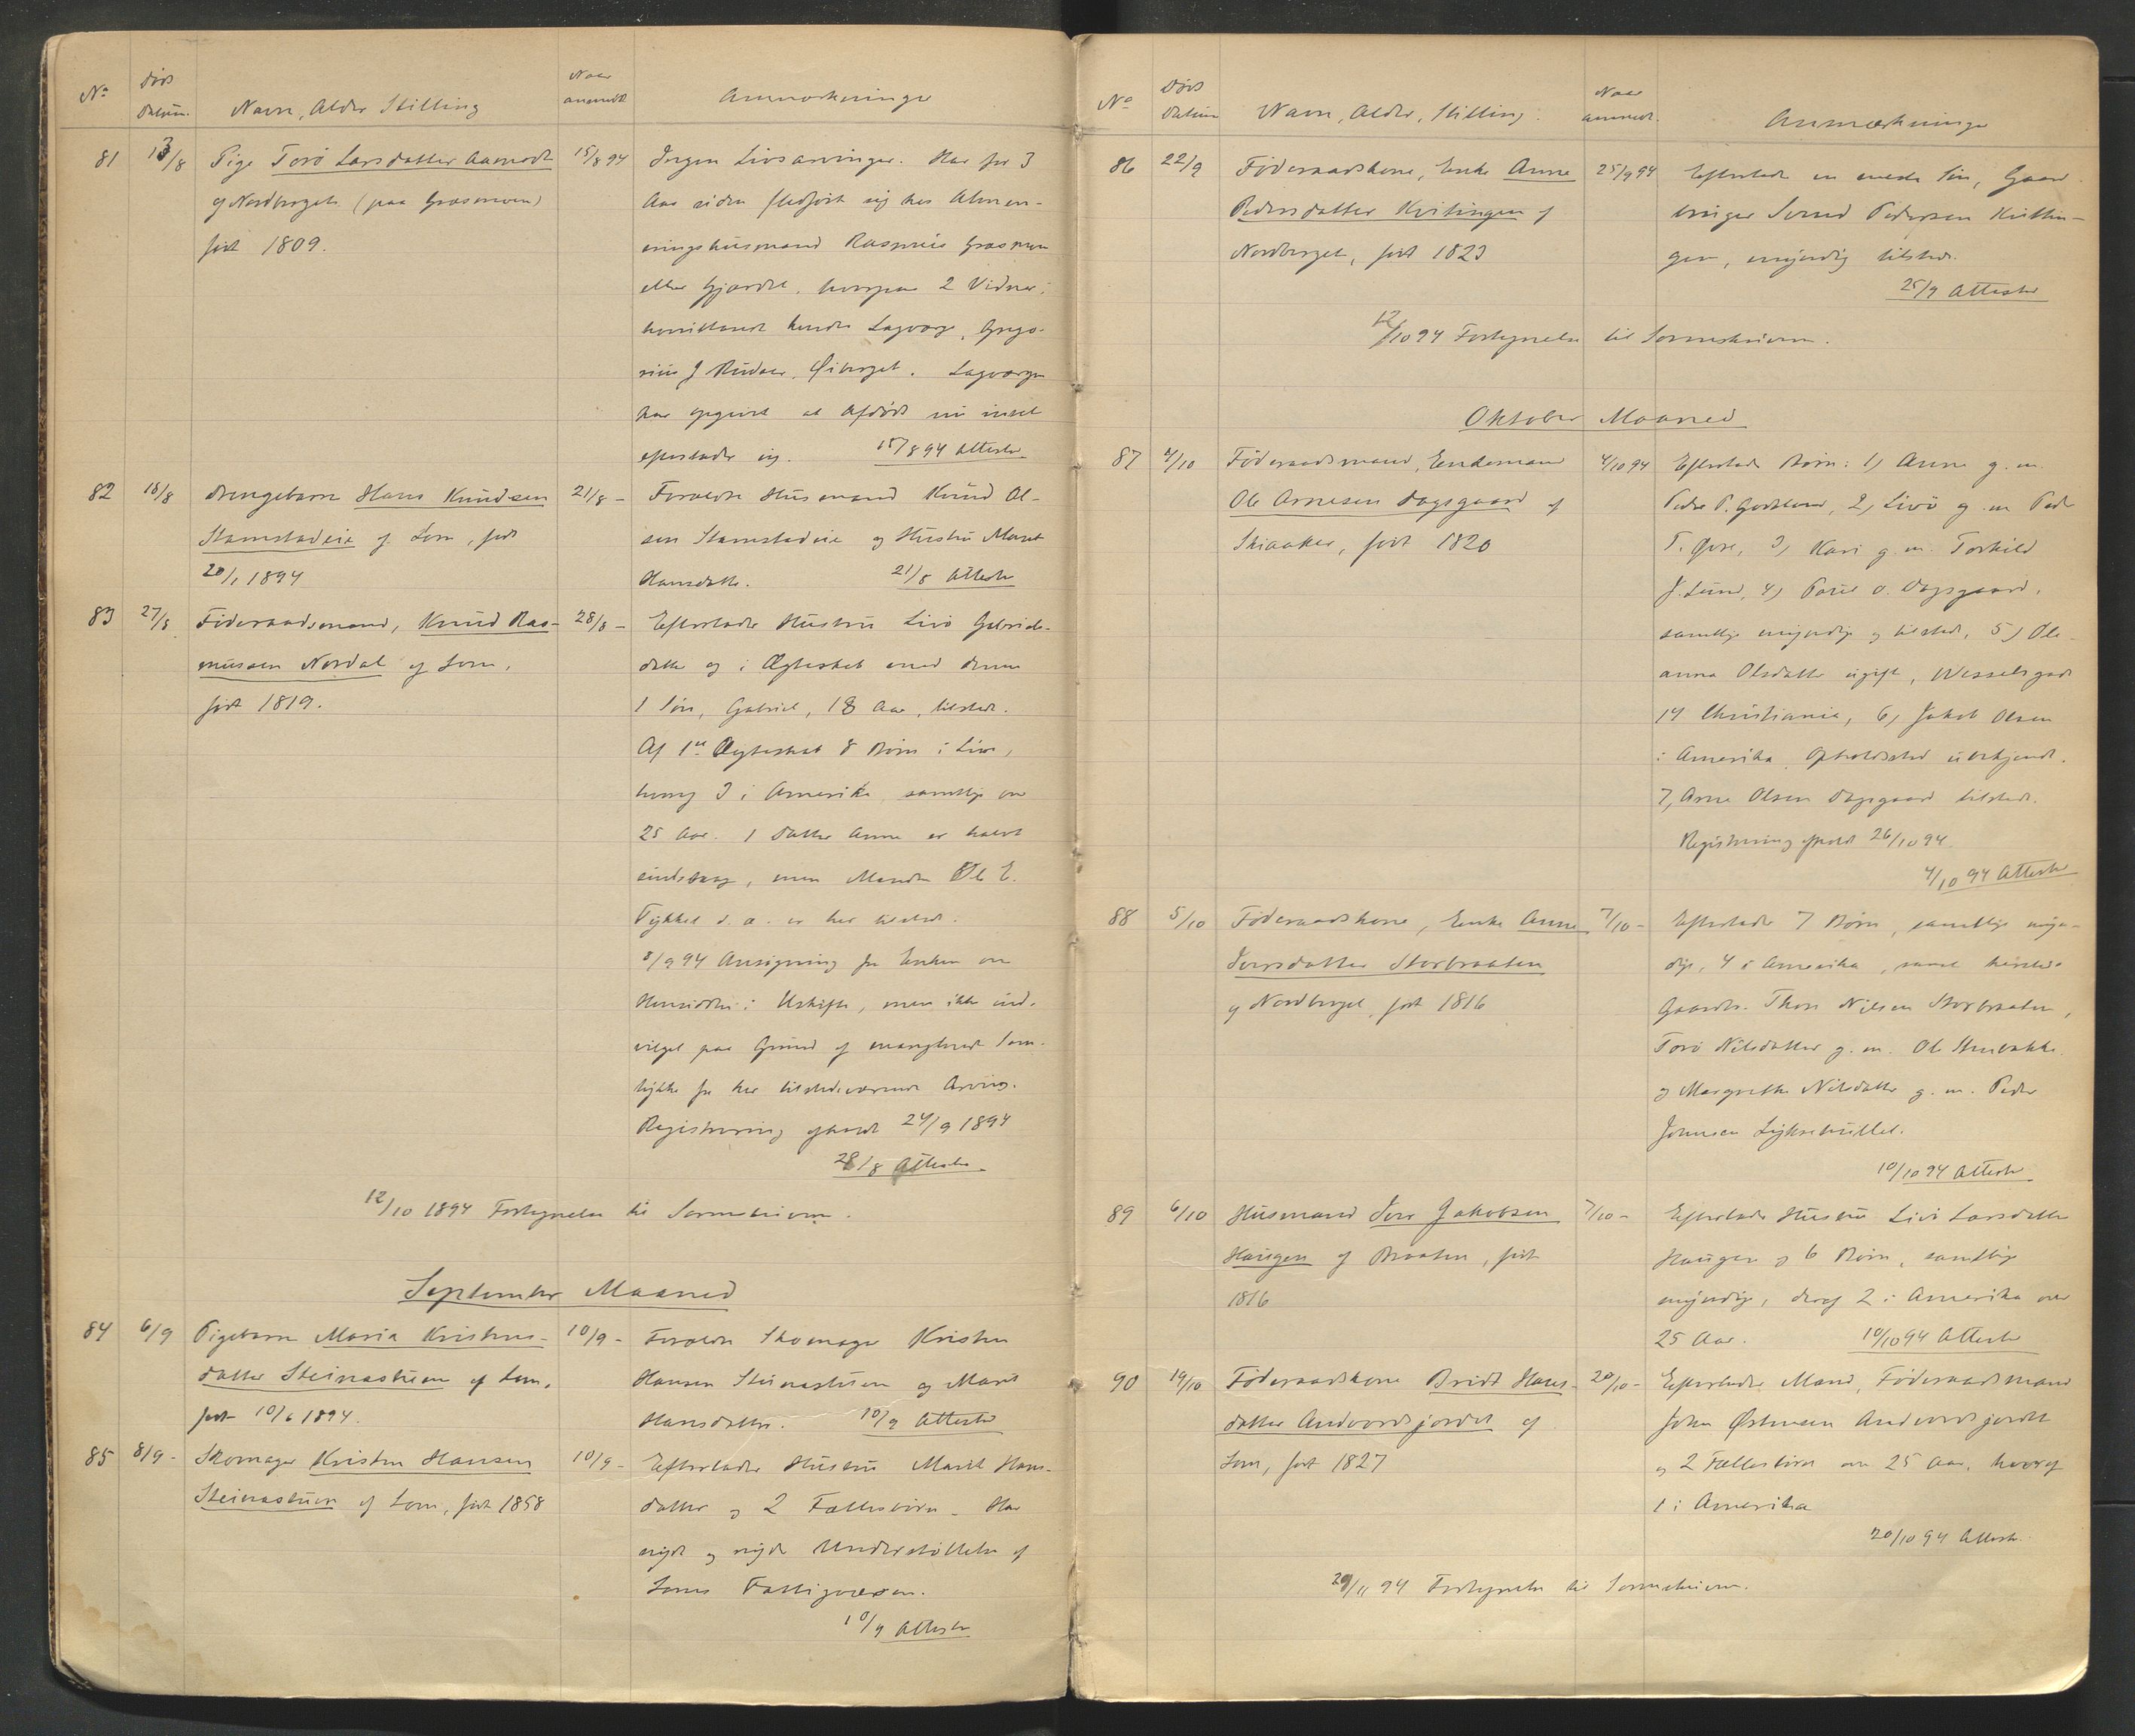 No
Døds
Datum.
Navn, Alder Stilling
Naar
anmeldt
Anmærkninger
81 13/8 Pige Torø Larsdatter Aamodt 15/8 94 Ingen Livsarvinger. Har for 3
af Nordberget (paa Græsmoen) Aar siden fledført sig hos Almen-
født 1809. ningshusmand Rasmus Græsmoen
eller Gjærdet, hvorpaa 2 Vidner,
hvoriblandt hendes Lagværge, Grego-
rius J Rudaen, Øiberget. Lagværgen
har opgivet at Afdøde nu intet
efterlader sig. 15/8 94 Attester
82 18/8 Drengebarn Hans Knudsen 21/8 - Forældre Husmand Knud Ol-
Stamstadeie af Lom, født sen Stamstadeie og Hustru Marit
20/1 1894 Hansdatter. 21/8 Attester
83 27/8 Føderaadsmand, Knud Ras- 28/8 - Efterlader Hustru Livø Gabriels-
mussen Nordal af Lom, datter og i Ægteskab med denne
født 1819. 1 Søn, Gabriel, 18 Aar, tilstede.
Af 1ste Ægteskab 8 Børn i Live,
hvoraf 3 i Amerika, samtlige over
25 Aar. 1 Datter Anne er halvt
sindssvag, men Manden Ole E.
d. æ. er her tilstede.
8/9 94 Ansøgning fra Enken om
Hensidden i Uskifte, men ikke ind-
vilget paa Grund af manglende Sam-
tykke fra her tilstedeværende Arving.
Registrering afholdt 24/9 1894
28/8 Attester
12/10 1894 Fortegnelse til Sorenskriveren.
September Maaned
84 6/9 Pigebarn Maria Kristens- 10/9 - Forældre Skomager Kristen
datter Steinastuen af Lom, Hansen Steinastuen og Marit
født 10/6 1894. Hansdatter. 10/9 Attester
85 8/9 - Skomager Kristen Hansen 10/9 - Efterlader Hustru Marit Hans-
Steinastuen af Lom, født 1858 datter og 2 Fællesbørn. Har
nydt og nyder Understøttelse af
Loms Fattigvæsen.
10/9 Attester
No
Døds
Datum
Navn, Alder, Stilling.
Naar
anmeldt.
Anmærkninger
86 22/9 Føderaadskone, Enke Anne 25/9 94 Efterlader en eneste Søn, Gaard-
Pedersdatter Kvitingen af bruger Pedersen Kvitin-
Nordberget, født 1823 gen, myndig tilstede.
25/9 Attester
12/10 94 Fortegnelse til Sorenskriveren.
Oktober Maaned
87 4/10 Føderaadsmand, Enkemand 4/10 94 Efterlader Børn: 1) Anne g. m.
Ole Arnesen Dagsgaard af Peder P. 2) Livø g. m. Peder
Skiaaker, født 1820 T. Øvre, 3) Kari g. m. Torkild
J. Lund, 4) Poul O. Dagsgaard,
samtlige myndige og tilstede, 5) Ole-
anna Olsdatter ugift, Wesselsgade
14 Christiania, 6) Jakob Olsen
i Amerika, Opholdssted ubekjendt.
7, Arne Olsen Dagsgaard tilstede.
Registrering afholdt 26/10 94.
4/10 94 Attester
88 5/10 Føderaadskone, Enke Anne 7/10 - Efterlader 7 Børn, samtlige myn-
Iversdatter Storbraaten dige, 4 i Amerika, samt
af Nordberget, født 1816 Gaardbr. Thor Nilsen Storbraaten,
Torø Nilsdatter g. m. Ole
og Margrethe Nilsdatter g. m. Peder
Johnsen
10/10 94 Attester
89 6/10 Husmand Iver Jakobsen 7/10 - Efterlader Hustru Livø Larsdatter
Haugen af Braaten, født Haugen og 6 Børn, samtlige
1816 myndige, deraf 2 i Amerika over
25 Aar. 10/10 94 Attester
90 19/10 Føderaadskone Bridt Hans- 20/10 - Efterlader Mand, Føderaadsmand
datter Andvordsjordet af John Østensen Andvordsjordet
Lom, født 1827 og 2 Fællesbørn over 25 Aar, hvoraf
1 i Amerika
20/10 94 Attester.
29/11 94 Fortegnelse til Sorenskriveren.